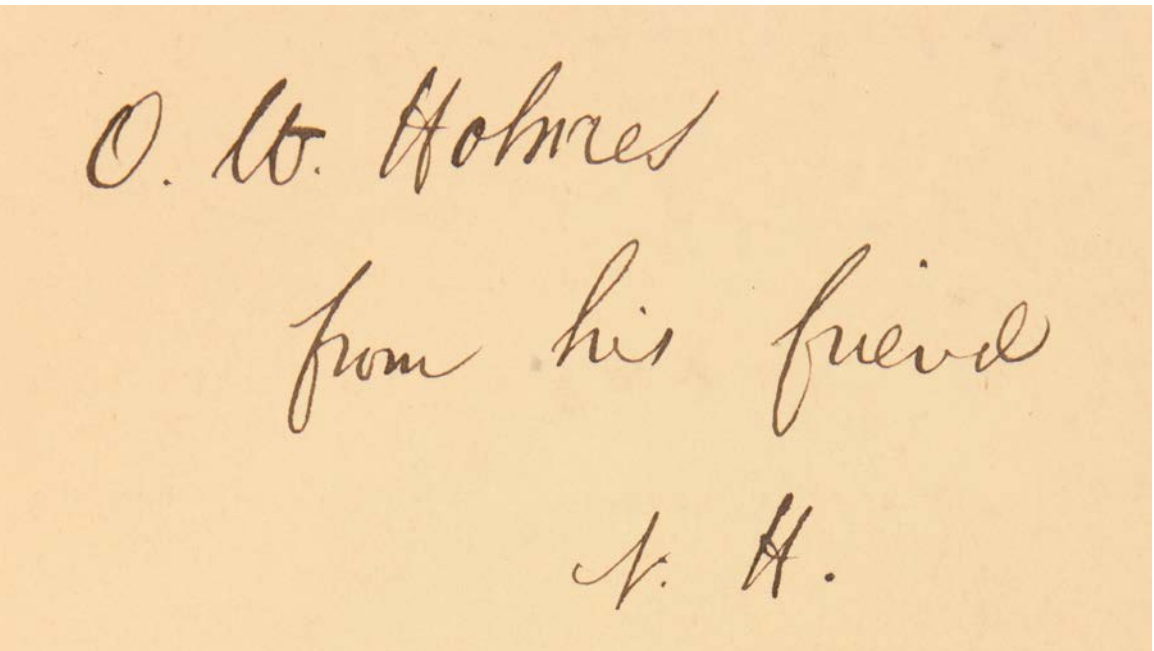 O. W. Holmes
from his friend
N. H.